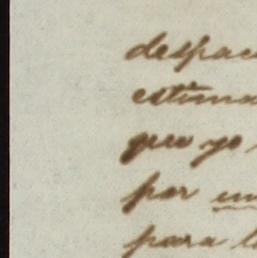 despac
estima
que yo
por en
para l